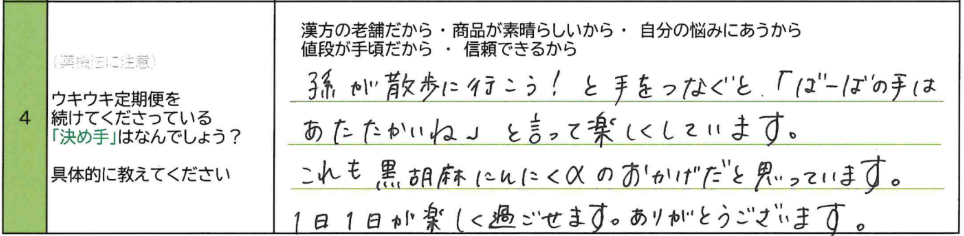 漢方の老舗だから・商品が素晴らしいから・ 自分の悩みにあうから
値段が手頃だから ・ 信頼できるから
(薬機法に注意)
4
ウキウキ定期便を
続けてくださっている
「決め手」はなんでしょう？
具体的に教えてください
孫が散歩に行こう！と手をつなぐと、「ばーばの手は
あたたかいね」と言って楽しくしています。
これも黒胡麻にんにくαのおかげだと思っています。
1日1日が楽しく過ごせます。ありがとうございます。